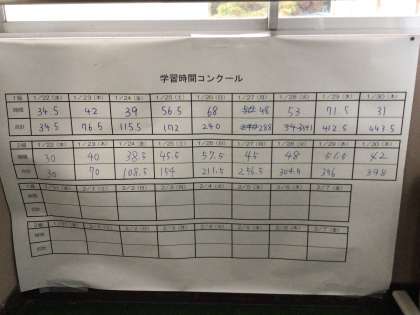 学習時間コンクール
1組 1/22(水) 1/23(木) 1/24(金) 1/25(土) 1/26(日) 1/27(月) 1/28(火) 1/29(水) 1/30(木)
時間 34.5 42 39 56.5 68 48 53 71.5 31
合計 34.5 76.5 115.5 172 240 288 341 412.5 443.5
2組 1/22(水) 1/23(木) 1/24(金) 1/25(土) 1/26(日) 1/27(月) 1/28(火) 1/29(水) 1/30(木)
時間 30 40 38.5 45.5 57.5 45 48 42
合計 30 70 108.5 154 211.5 256.5 304.5
1組 2/1(土) 2/2(日) 2/3(月) 2/4(火) 2/5(水) 2/6(木) 2/7(金)
時間
合計
2組 2/1(土) 2/2(日) 2/3(月) 2/4(火) 2/5(水) 2/6(木) 2/7(金)
時間
合計